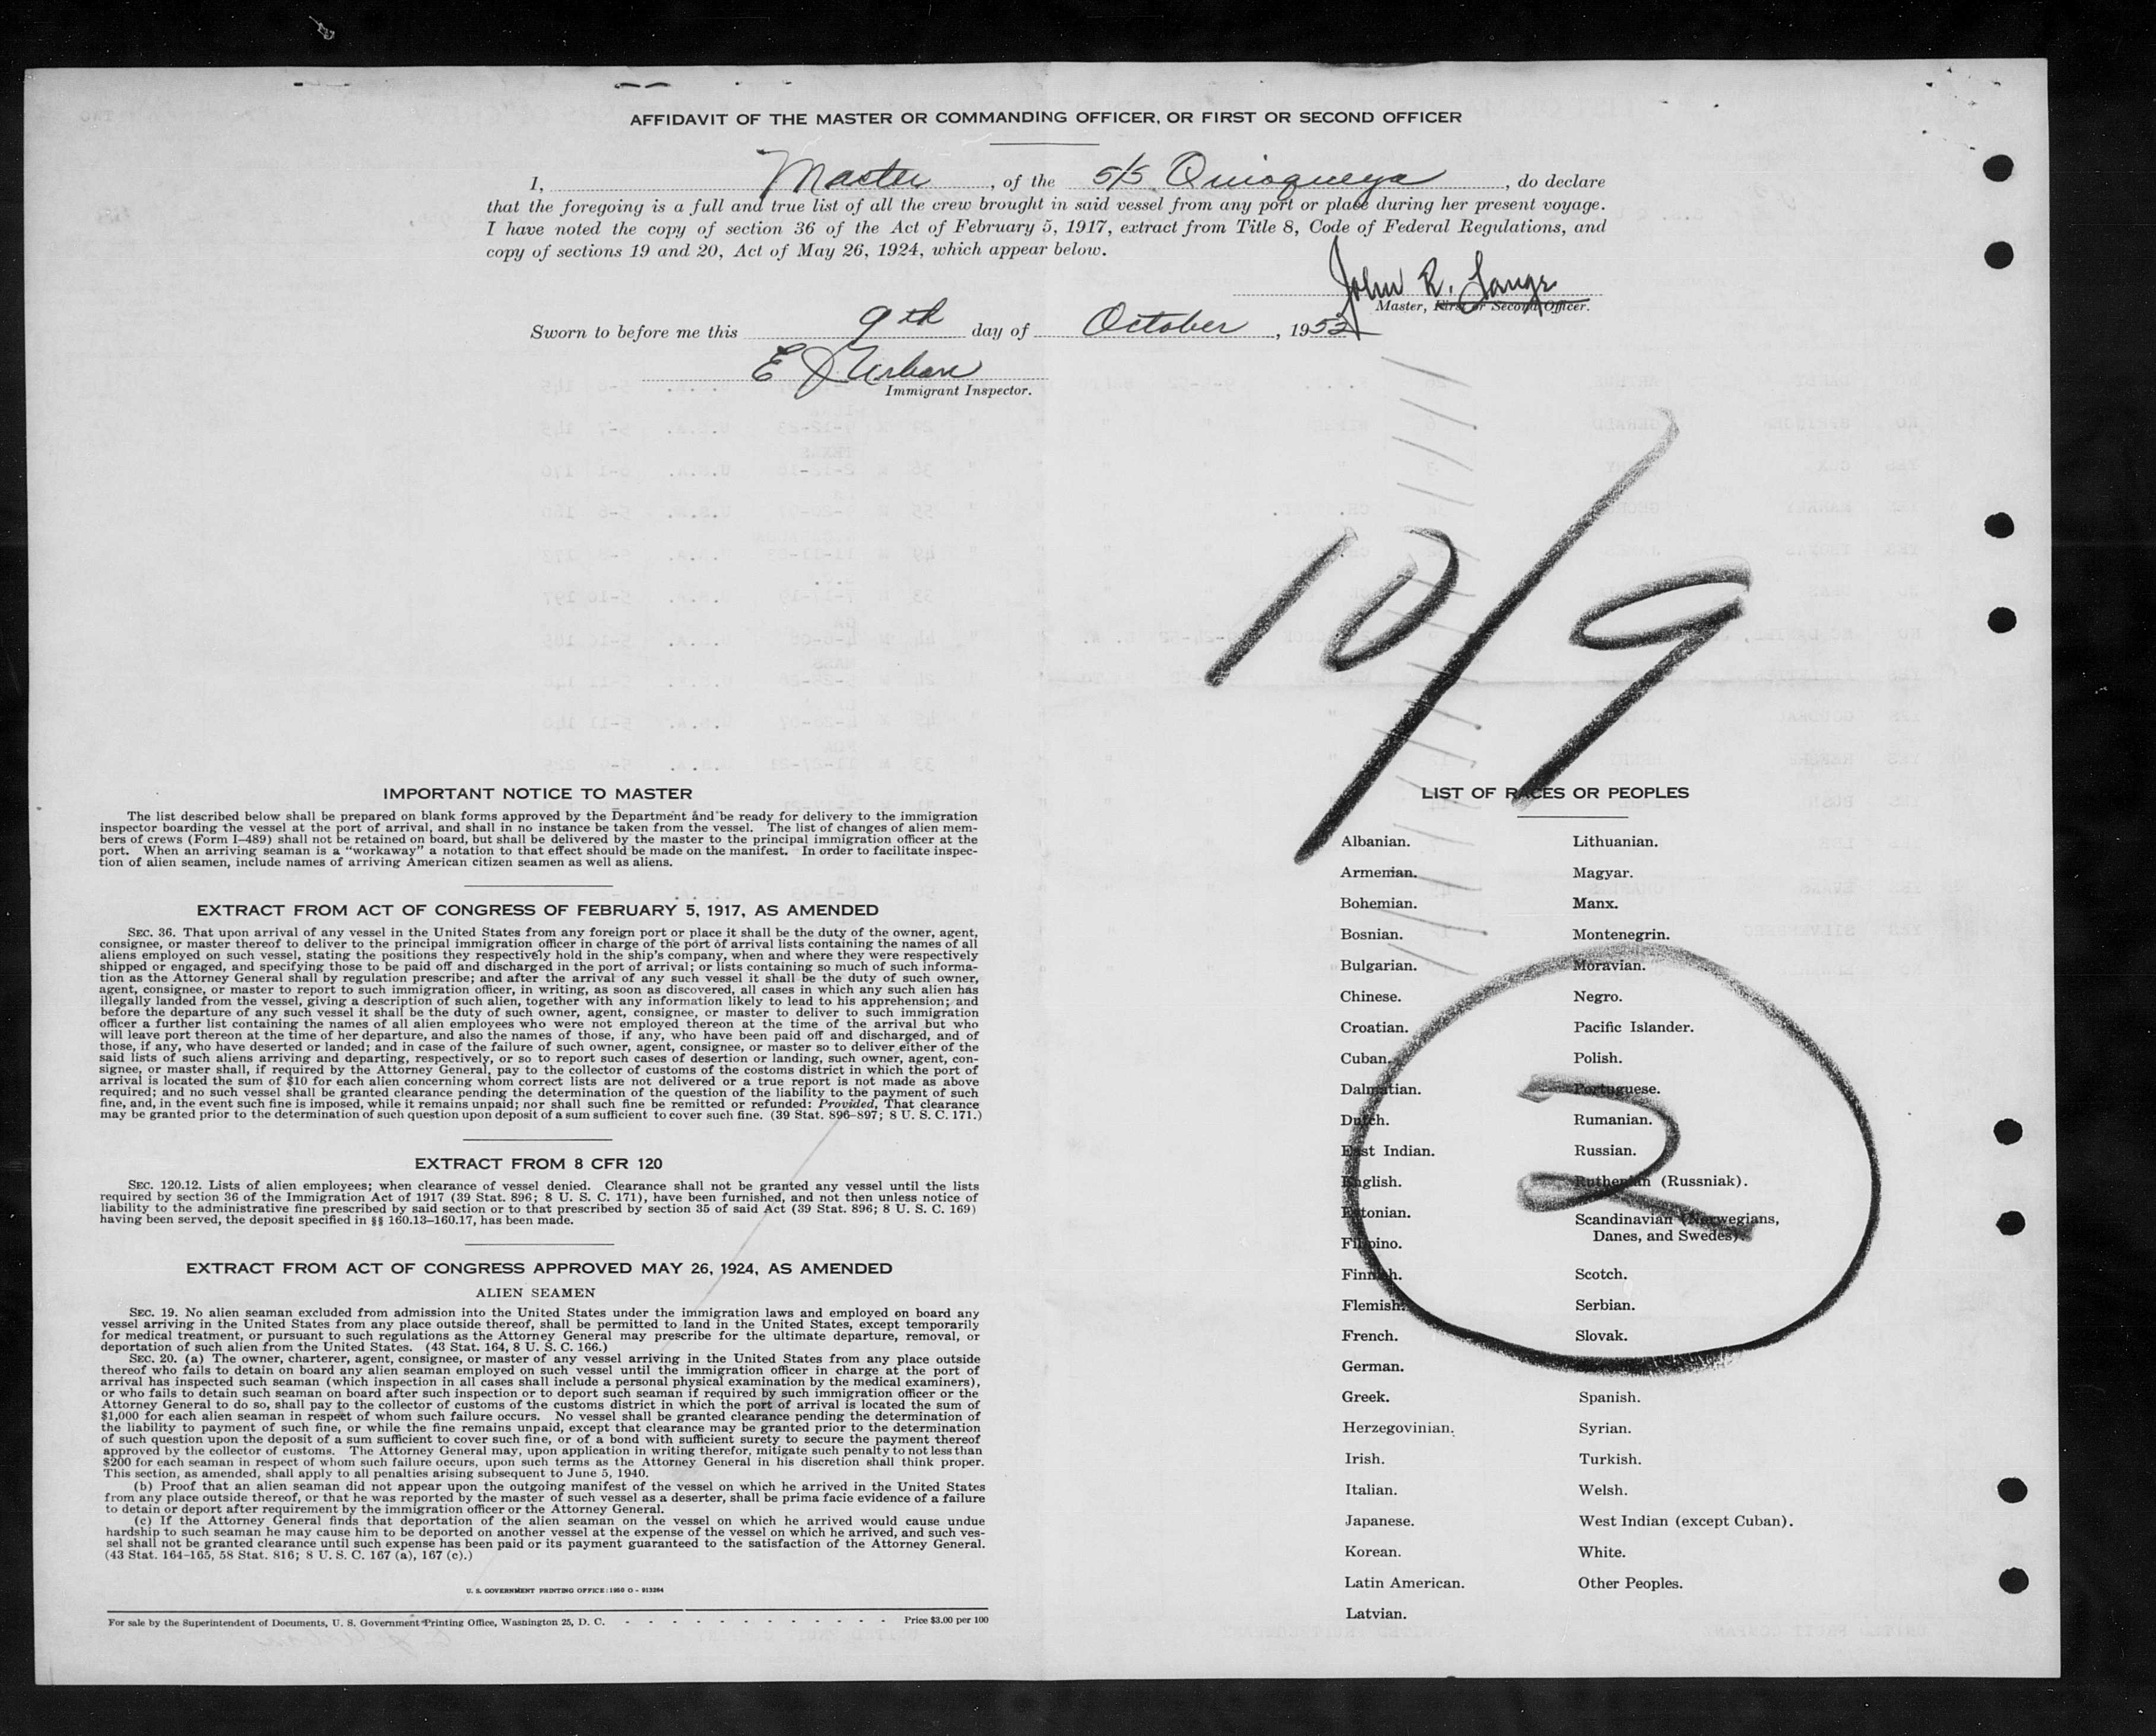 AFFIDAVIT OF THE MASTER OR COMMANDING OFFICER, OR FIRST OR SECOND OFFICER
I, Master, of the S/S Quisqueya, do declare
that the foregoing is a full and true list of all the crew brought in said vessel from any port or place during her present voyage.
I have noted the copy of section 36 of the Act of February 5, 1917, extract from Title 8, Code of Federal Regulations, and
copy of sections 19 and 20, Act of May 26, 1924, which appear below.
John R. Lange
Master, First or Second Officer.
Sworn to before me this 9th day of October, 1952
E J Urban
Immigrant Inspector.
10/9
IMPORTANT NOTICE TO MASTER
The list described below shall be prepared on blank forms approved by the Department and be ready for delivery to the immigration
inspector boarding the vessel at the port of arrival, and shall in no instance be taken from the vessel. The list of changes of alien mem-
bers of crews (Form I-489) shall not be retained on board, but shall be delivered by the master to the principal immigration officer at the
port. When an arriving seaman is a "workaway" a notation to that effect should be made on the manifest. In order to facilitate inspec-
tion of alien seamen, include names of arriving American citizen seamen as well as aliens.
EXTRACT FROM ACT OF CONGRESS OF FEBRUARY 5, 1917, AS AMENDED
SEC. 36. That upon arrival of any vessel in the United States from any foreign port or place it shall be the duty of the owner, agent,
consignee, or master thereof to deliver to the principal immigration officer in charge of the port of arrival lists containing the names of all
aliens employed on such vessel, stating the positions they respectively hold in the ship's company, when and where they were respectively
shipped or engaged, and specifying those to be paid off and discharged in the port of arrival; or lists containing so much of such informa-
tion as the Attorney General shall by regulation prescribe; and after the arrival of any such vessel it shall be the duty of such owner,
agent, consignee, or master to report to such immigration officer, in writing, as soon as discovered, all cases in which any such alien has
illegally landed from the vessel, giving a description of such alien, together with any information likely to lead to his apprehension; and
before the departure of any such vessel it shall be the duty of such owner, agent, consignee, or master to deliver to such immigration
officer a further list containing the names of all alien employees who were not employed thereon at the time of the arrival but who
will leave port thereon at the time of her departure, and also the names of those, if any, who have been paid off and discharged, and of
those, if any, who have deserted or landed; and in case of the failure of such owner, agent, consignee, or master so to deliver either of the
said lists of such aliens arriving and departing, respectively, or so to report such cases of desertion or landing, such owner, agent, con-
signee, or master shall, if required by the Attorney General, pay to the collector of customs of the costoms district in which the port of
arrival is located the sum of $10 for each alien concerning whom correct lists are not delivered or a true report is not made as above
required; and no such vessel shall be granted clearance pending the determination of the question of the liability to the payment of such
fine, and, in the event such fine is imposed, while it remains unpaid; nor shall such fine be remitted or refunded: Provided, That clearance
may be granted prior to the determination of such question upon deposit of a sum sufficient to cover such fine. (39 Stat. 896-897; 8 U. S. C. 171.)
EXTRACT FROM 8 CFR 120
SEC. 120.12. Lists of alien employees; when clearance of vessel denied. Clearance shall not be granted any vessel until the lists
required by section 36 of the Immigration Act of 1917 (39 Stat. 896; 8 U. S. C. 171), have been furnished, and not then unless notice of
liability to the administrative fine prescribed by said section or to that prescribed by section 35 of said Act (39 Stat. 896; 8 U. S. C. 169)
having been served, the deposit specified in §§ 160.13-160.17, has been made.
EXTRACT FROM ACT OF CONGRESS APPROVED MAY 26, 1924, AS AMENDED
ALIEN SEAMEN
SEC. 19. No alien seaman excluded from admission into the United States under the immigration laws and employed on board any
vessel arriving in the United States from any place outside thereof, shall be permitted to land in the United States, except temporarily
for medical treatment, or pursuant to such regulations as the Attorney General may prescribe for the ultimate departure, removal, or
deportation of such alien from the United States. (43 Stat. 164, 8 U. S. C. 166.)
SEC. 20. (a) The owner, charterer, agent, consignee, or master of any vessel arriving in the United States from any place outside
thereof who fails to detain on board any alien seaman employed on such vessel until the immigration officer in charge at the port of
arrival has inspected such seaman (which inspection in all cases shall include a personal physical examination by the medical examiners),
or who fails to detain such seaman on board after such inspection or to deport such seaman if required by such immigration officer or the
Attorney General to do so, shall pay to the collector of customs of the customs district in which the port of arrival is located the sum of
$1,000 for each alien seaman in respect of whom such failure occurs. No vessel shall be granted clearance pending the determination of
the liability to payment of such fine, or while the fine remains unpaid, except that clearance may be granted prior to the determination
of such question upon the deposit of a sum sufficient to cover such fine, or of a bond with sufficient surety to secure the payment thereof
approved by the collector of customs. The Attorney General may, upon application in writing therefor, mitigate such penalty to not less than
$200 for each seaman in respect of whom such failure occurs, upon such terms as the Attorney General in his discretion shall think proper.
This section, as amended, shall apply to all penalties arising subsequent to June 5, 1940.
(b) Proof that an alien seaman did not appear upon the outgoing manifest of the vessel on which he arrived in the United States
from any place outside thereof, or that he was reported by the master of such vessel as a deserter, shall be prima facie evidence of a failure
to detain or deport after requirement by the immigration officer or the Attorney General.
(c) If the Attorney General finds that deportation of the alien seaman on the vessel on which he arrived would cause undue
hardship to such seaman he may cause him to be deported on another vessel at the expense of the vessel on which he arrived, and such ves-
sel shall not be granted clearance until such expense has been paid or its payment guaranteed to the satisfaction of the Attorney General.
(43 Stat. 164-165, 58 Stat. 816; 8 U. S. C. 167 (a), 167 (c).)
U. S. GOVERNMENT PRINTING OFFICE : 1950 O - 913264
For sale by the Superintendent of Documents, U. S. Government Printing Office, Washington 25, D. C. - - - - - - - - - - - - - Price $3.00 per 100
LIST OF RACES OR PEOPLES
Albanian.
Armenian.
Bohemian.
Bosnian.
Bulgarian.
Chinese.
Croatian.
Cuban.
Dalmatian.
Dutch.
East Indian.
English.
Estonian.
Filipino.
Finnish.
Flemish.
French.
German.
Greek.
Herzegovinian.
Irish.
Italian.
Japanese.
Korean.
Latin American.
Latvian.
Lithuanian.
Magyar.
Manx.
Montenegrin.
Moravian.
Negro.
Pacific Islander.
Polish.
Portuguese.
Rumanian.
Russian.
Ruthenian (Russniak).
Scandinavian (Norwegians,
Danes, and Swedes).
Scotch.
Serbian.
Slovak.
Spanish.
Syrian.
Turkish.
Welsh.
West Indian (except Cuban).
White.
Other Peoples.
2